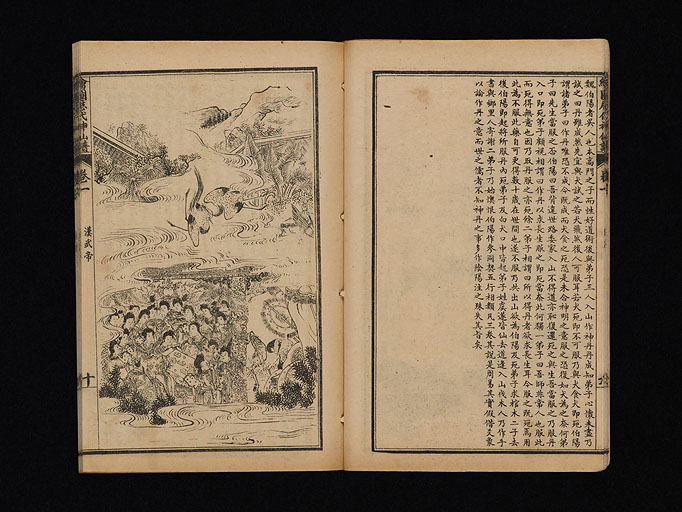 魏伯陽者吳人也本高門之子而性好道術後與弟子三人入山作神丹丹成知弟子心懷未盡乃
試之曰丹雖成然先宜與犬試之若犬飛然後人可服耳若犬死即不可服乃與犬食犬即死伯陽
謂諸弟子曰作丹唯恐不成今既成而犬食之死恐是未合神明之意服之恐復如犬為之奈何弟
子曰先生當服之否伯陽曰吾背違世路委家入山不得道亦恥復還死之與生吾當服之乃服丹
入口即死弟子顧視相謂曰作丹以求長生服之即死當奈此何獨一弟子曰吾師非常人也服此
而死得無意也因乃取丹服之亦死餘二弟子相謂曰所以得丹者欲求長生耳今服之既死焉用
此為不服此藥自可更得數十歲在世間也遂不服乃共出山欲為伯陽及死弟子求棺木二子去
後伯陽即起將所服丹內死弟子及白犬口中皆起弟子姓虞遂皆仙去道逢入山伐木人乃作手
書與鄉里人寄謝二弟子乃始懊恨伯陽作參同契五行相類凡三卷其說是周易其實假借爻象
以論作丹之意而世之儒者不知神丹之事多作陰陽注之殊失其旨矣
卷一
漢武帝
十